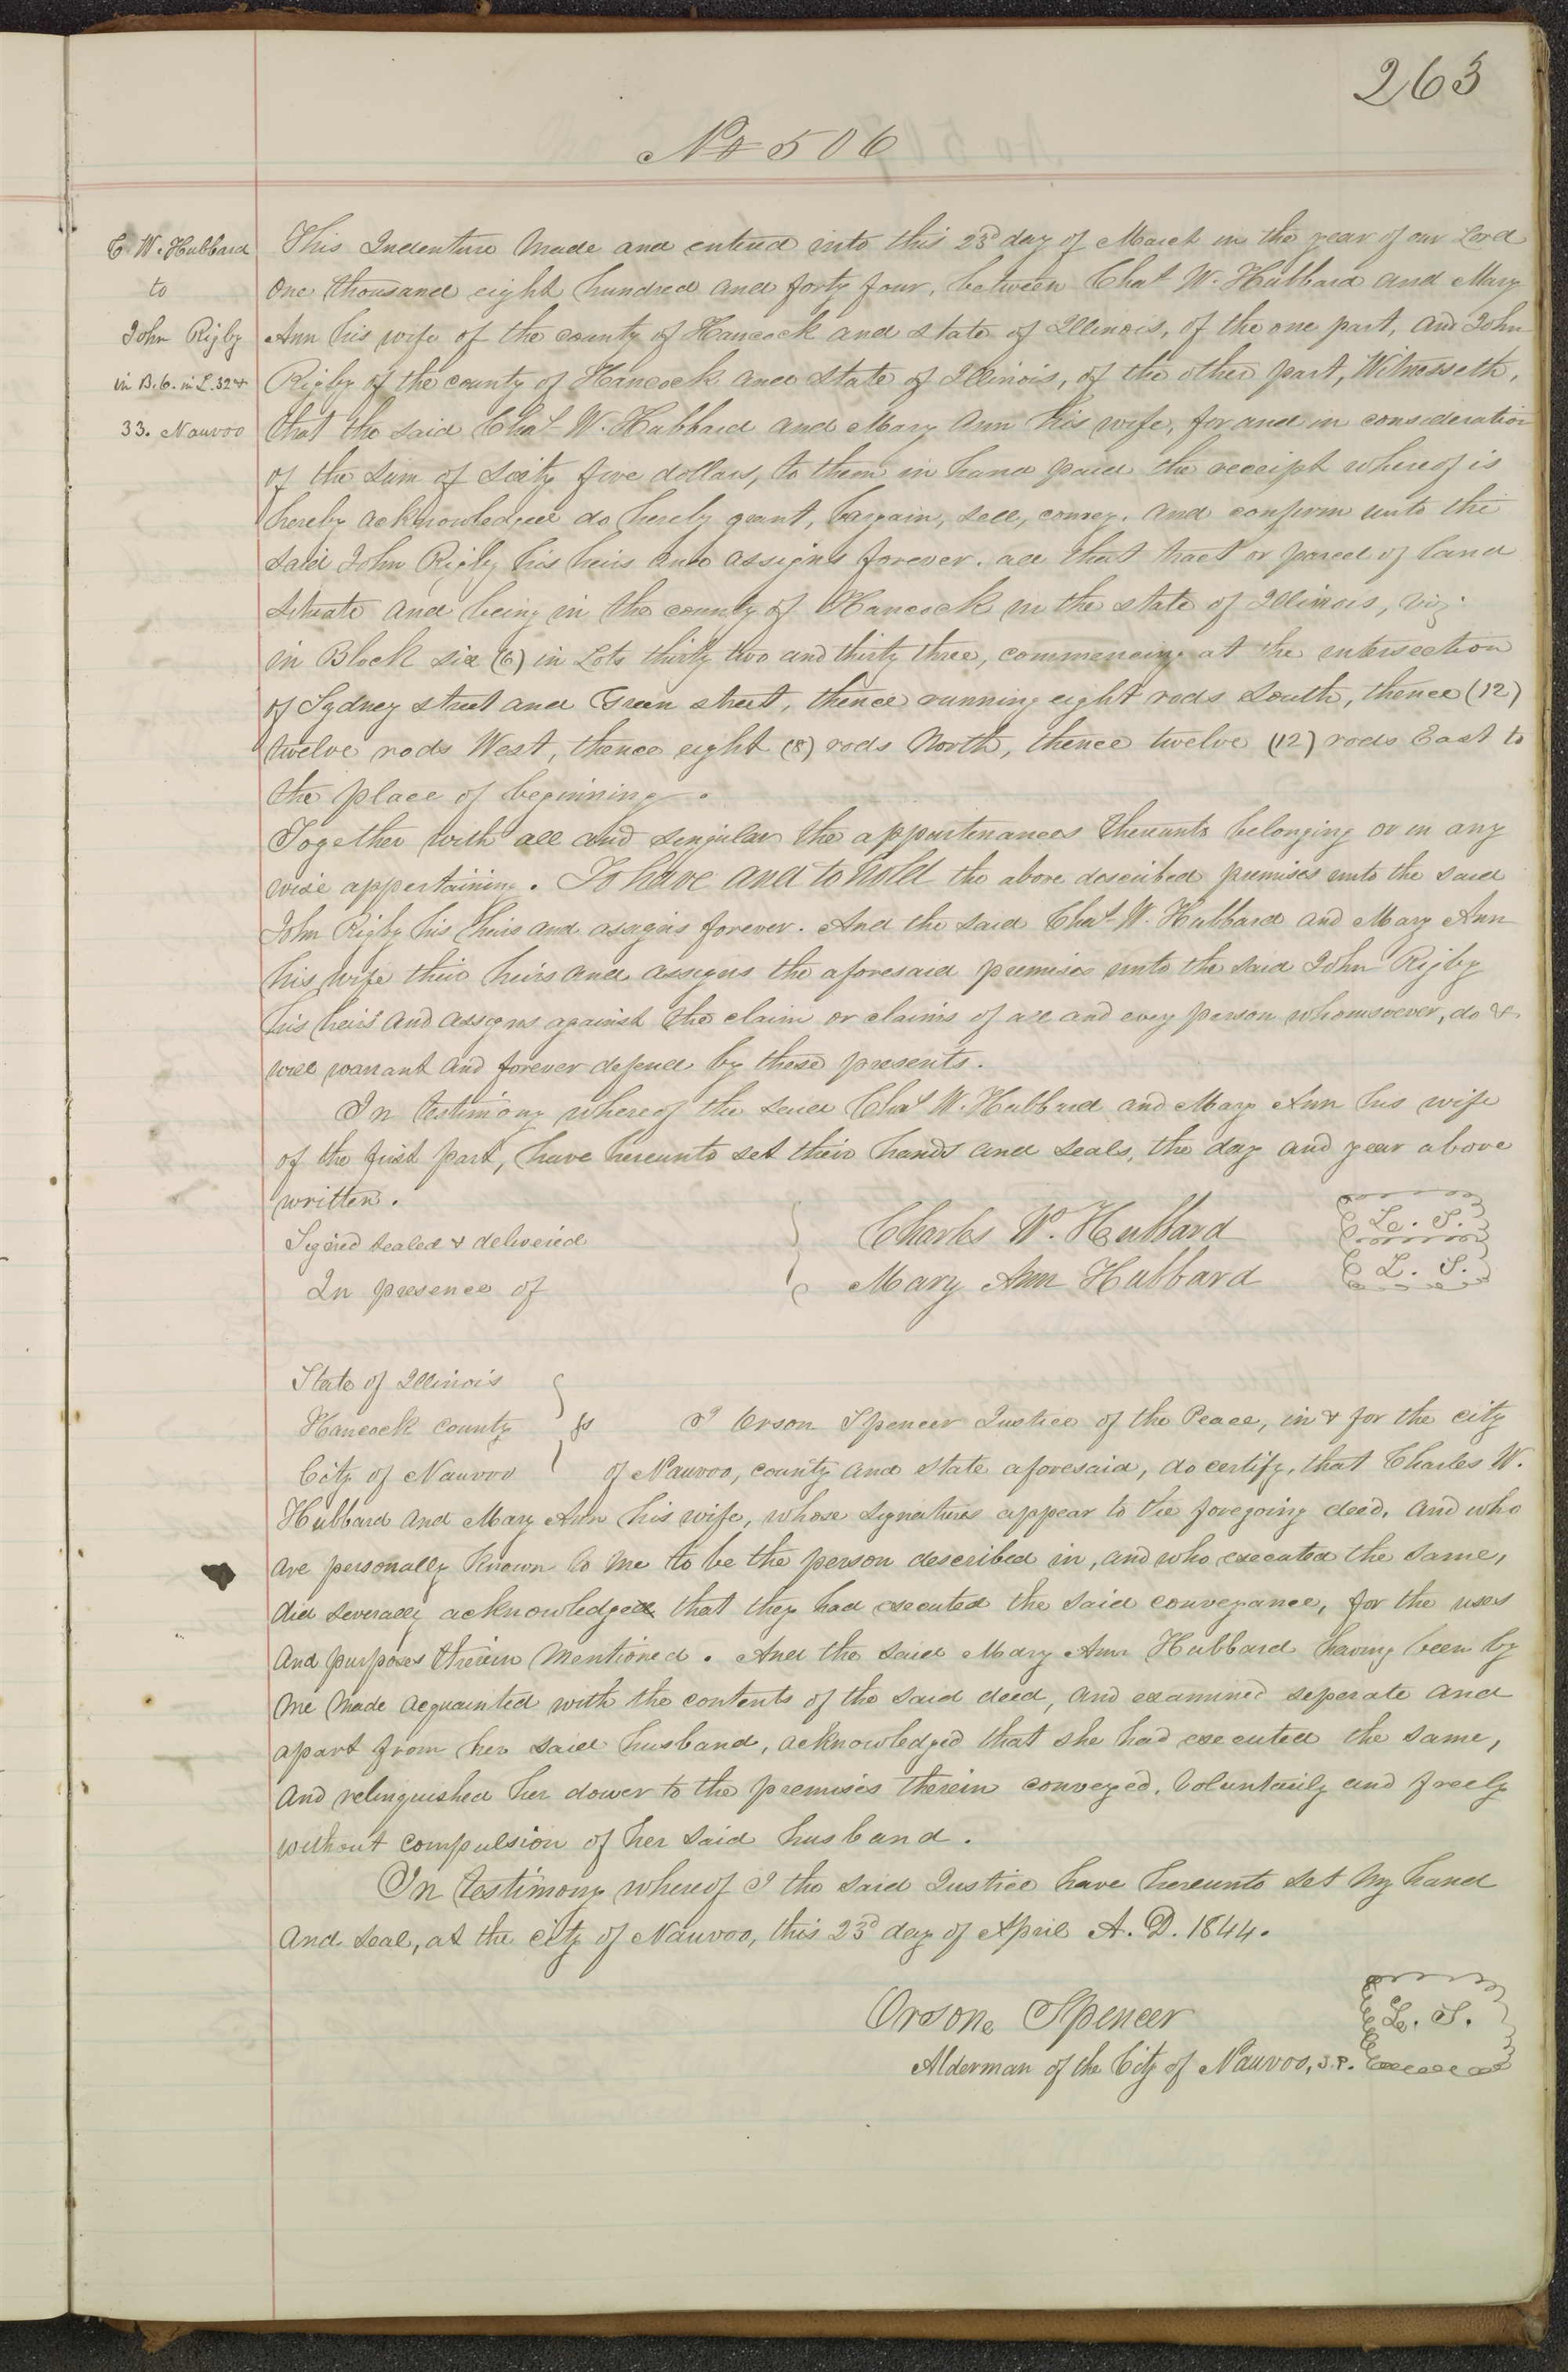 263
No 506
C. W. Hubbard
to
John Rigby
in B. 6. in L. 32 &
33. Nauvoo
This Indenture Made and entered into this 23d day of March in the year of our Lord
One thousand eight hundred and forty four, between Chas W. Hubbard and Mary
Ann his wife of the county of Hancock and state of Illinois, of the one part, and John
Rigby of the county of Hancock and state of Illinois, of the other part, Witnesseth,
that the said Chas W. Hubbard and Mary Ann his wife, for and in consideration
of the sum of Sixty five dollars, to them in hand paid the receipt whereof is
hereby acknowledged do hereby grant, bargain, sell, convey, and confirm unto the
said John Rigby his heirs and assigns forever, all that tract or parcel of land
Situate and being in the county of Hancock in the state of Illinois, viz:
in Block six (6) in Lots thirty two and thirty three, commencing at the intersection
of Sydney street and Green street, thence running eight rods South, thence (12)
twelve rods West, thence eight (8) rods North, thence twelve (12) rods East to
the place of beginning.
Together with all and singular the appurtenances thereunto belonging or in any
wise appertaining. To have and to hold the above described premises unto the said
John Rigby his heirs and assigns forever. And the said Chas W. Hubbard and Mary Ann
his wife their heirs and assigns the aforesaid premises unto the said John Rigby
his heirs and assigns against the claim or claims of all and every person whomsoever, do &
will warrant and forever defend by these presents.
In testimony whereof the said Chas W. Hubbard and Mary Ann his wife
of the first part, have hereunto set their hands and seals, the day and year above
written.
Signed sealed & delivered
In presence of
Charles W. Hubbard L. S.
Mary Ann Hubbard L. S.
State of Illinois
Hancock county ss I Orson Spencer Justice of the Peace, in & for the city
City of Nauvoo of Nauvoo, county and state aforesaid, do certify, that Charles W.
Hubbard and Mary Ann his wife, whose signatures appear to the foregoing deed, and who
are personally known to me to be the person described in, and who executed the same,
did severally acknowledged that they had executed the said conveyance, for the uses
and purposes therein mentioned. And the said Mary Ann Hubbard having been by
me made acquainted with the contents of the said deed, and examined seperate and
apart from her said husband, acknowledged that she had executed the same,
and relinquished her dower to the premises therein conveyed, Voluntarily and freely
without compulsion of her said husband.
In testimony whereof I the said Justice have hereunto set my hand
and seal, at the city of Nauvoo, this 23d day of April A. D. 1844.
Orson Spencer L. S.
Alderman of the City of Nauvoo, J. P.